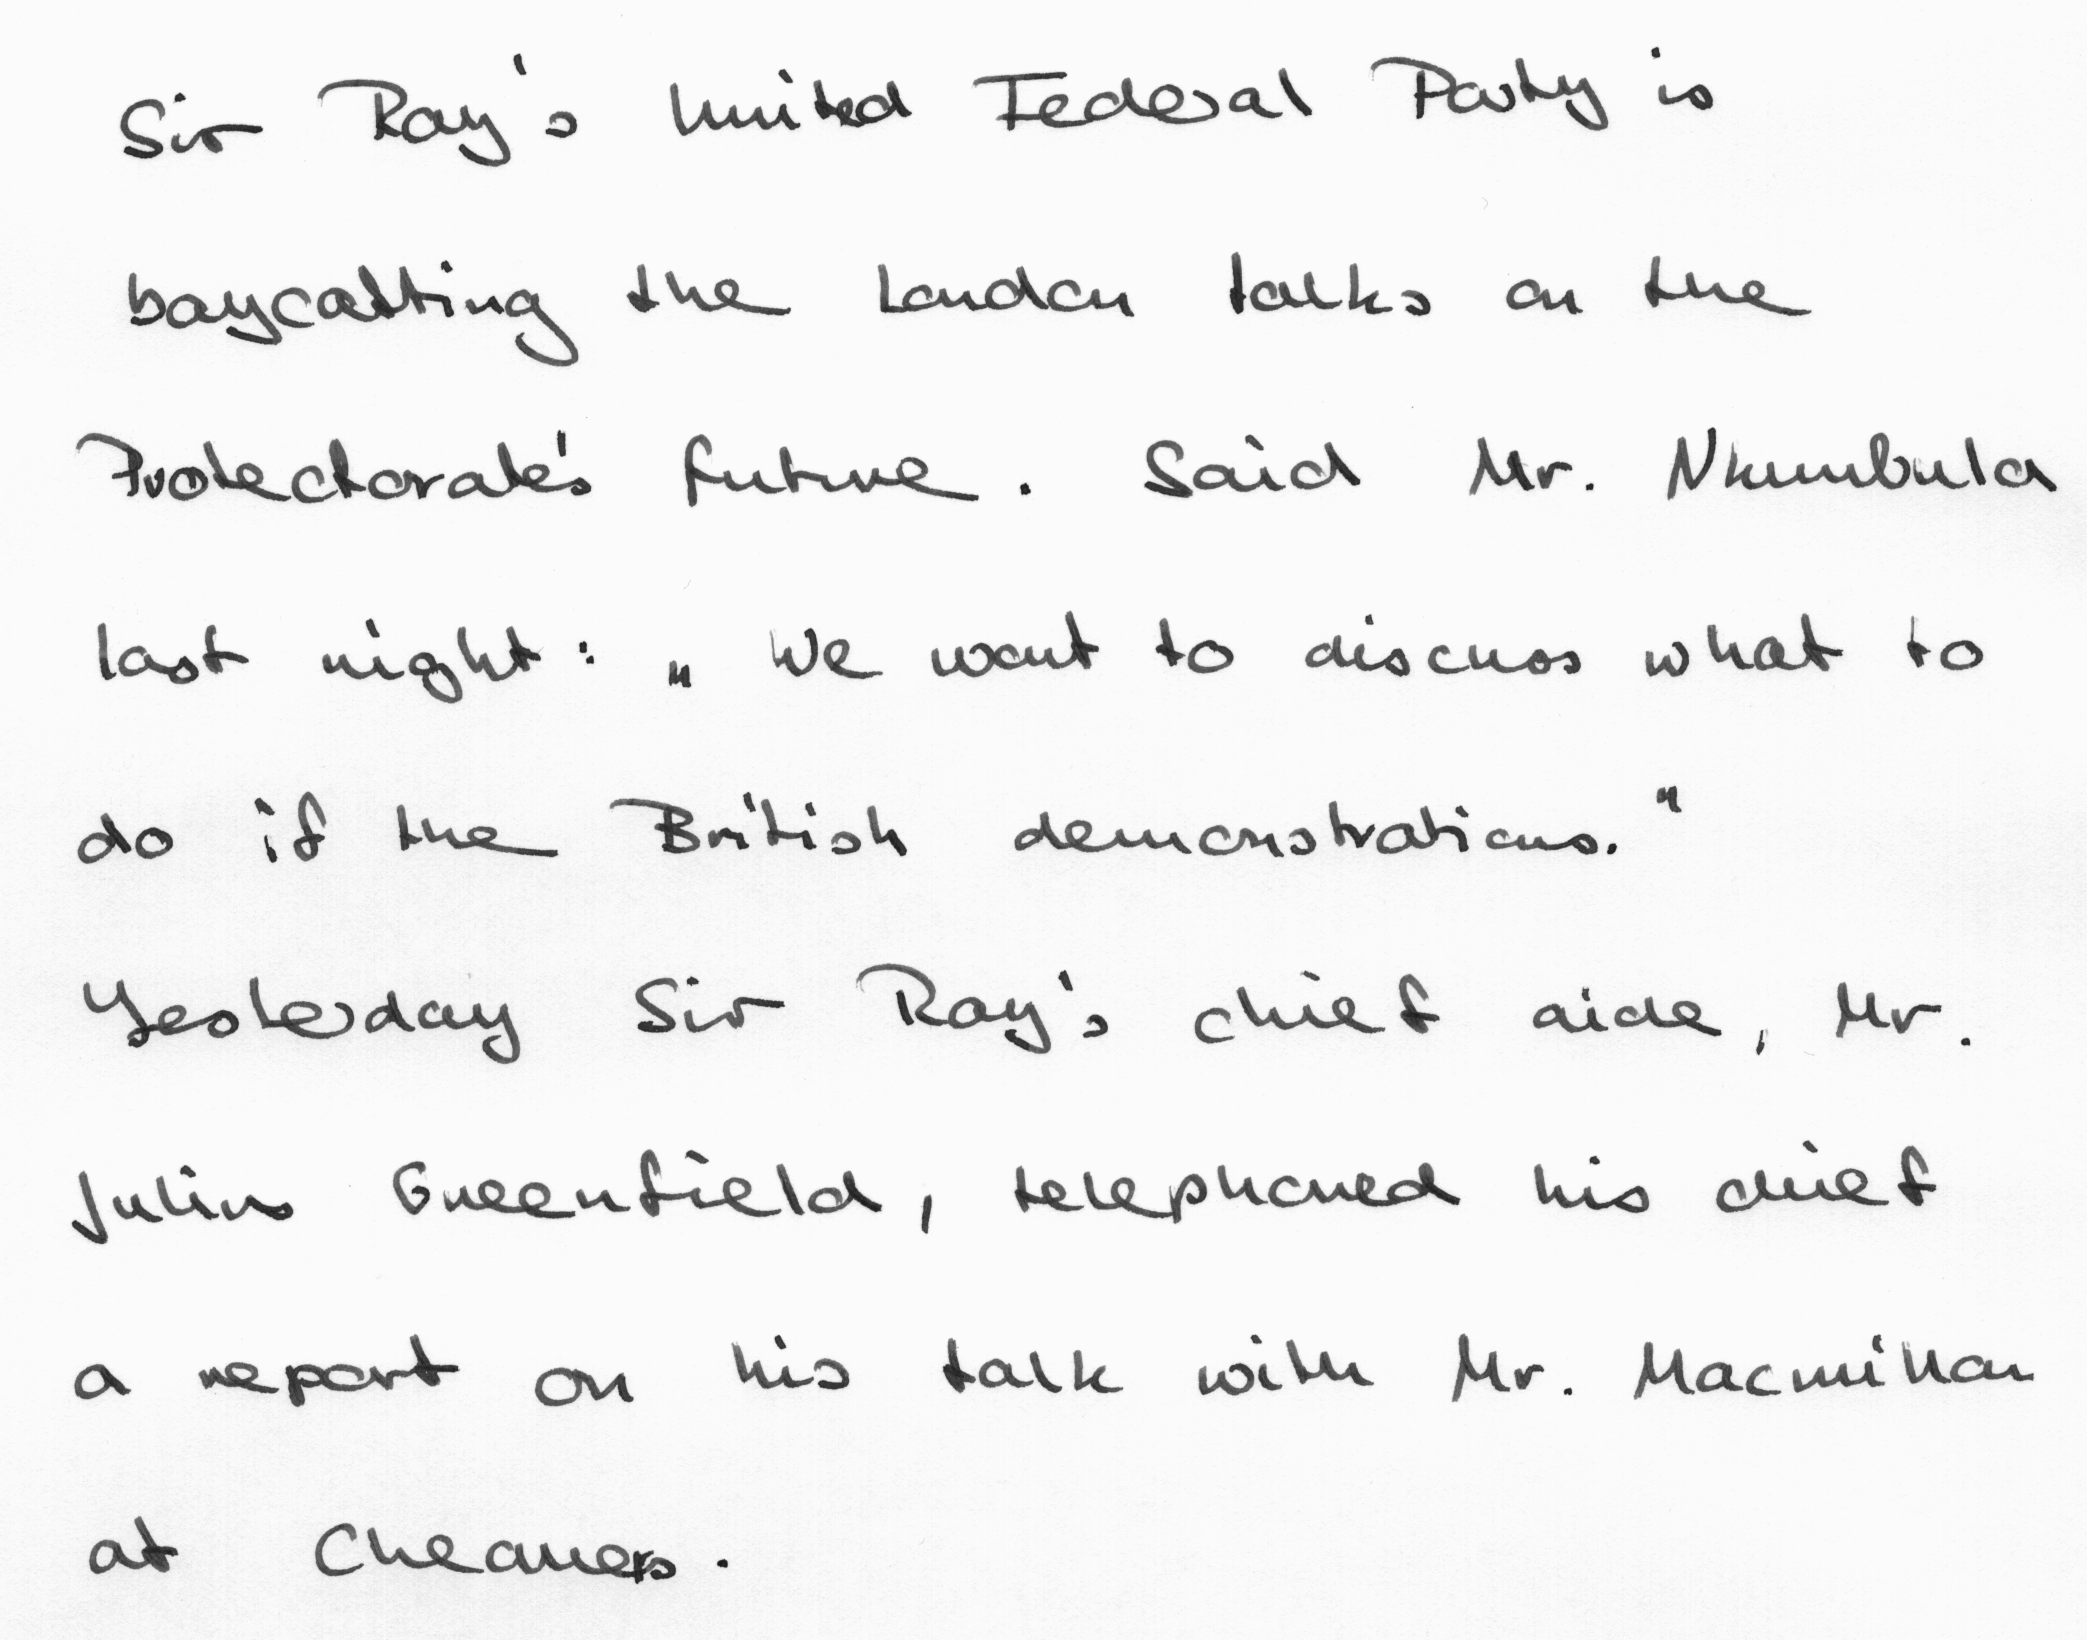 Sir Ray's United Federal Party is
boycatting the London talks on the
Protectorate's future. Said Mr. Nkumbula
last night: „ We want to discuss what to
do if the British demonstrations."
Yesterday Sir Ray's chief aide, Mr.
Julius Greenfield, telephoned his chief
a report on his talk with Mr. Macmillan
at